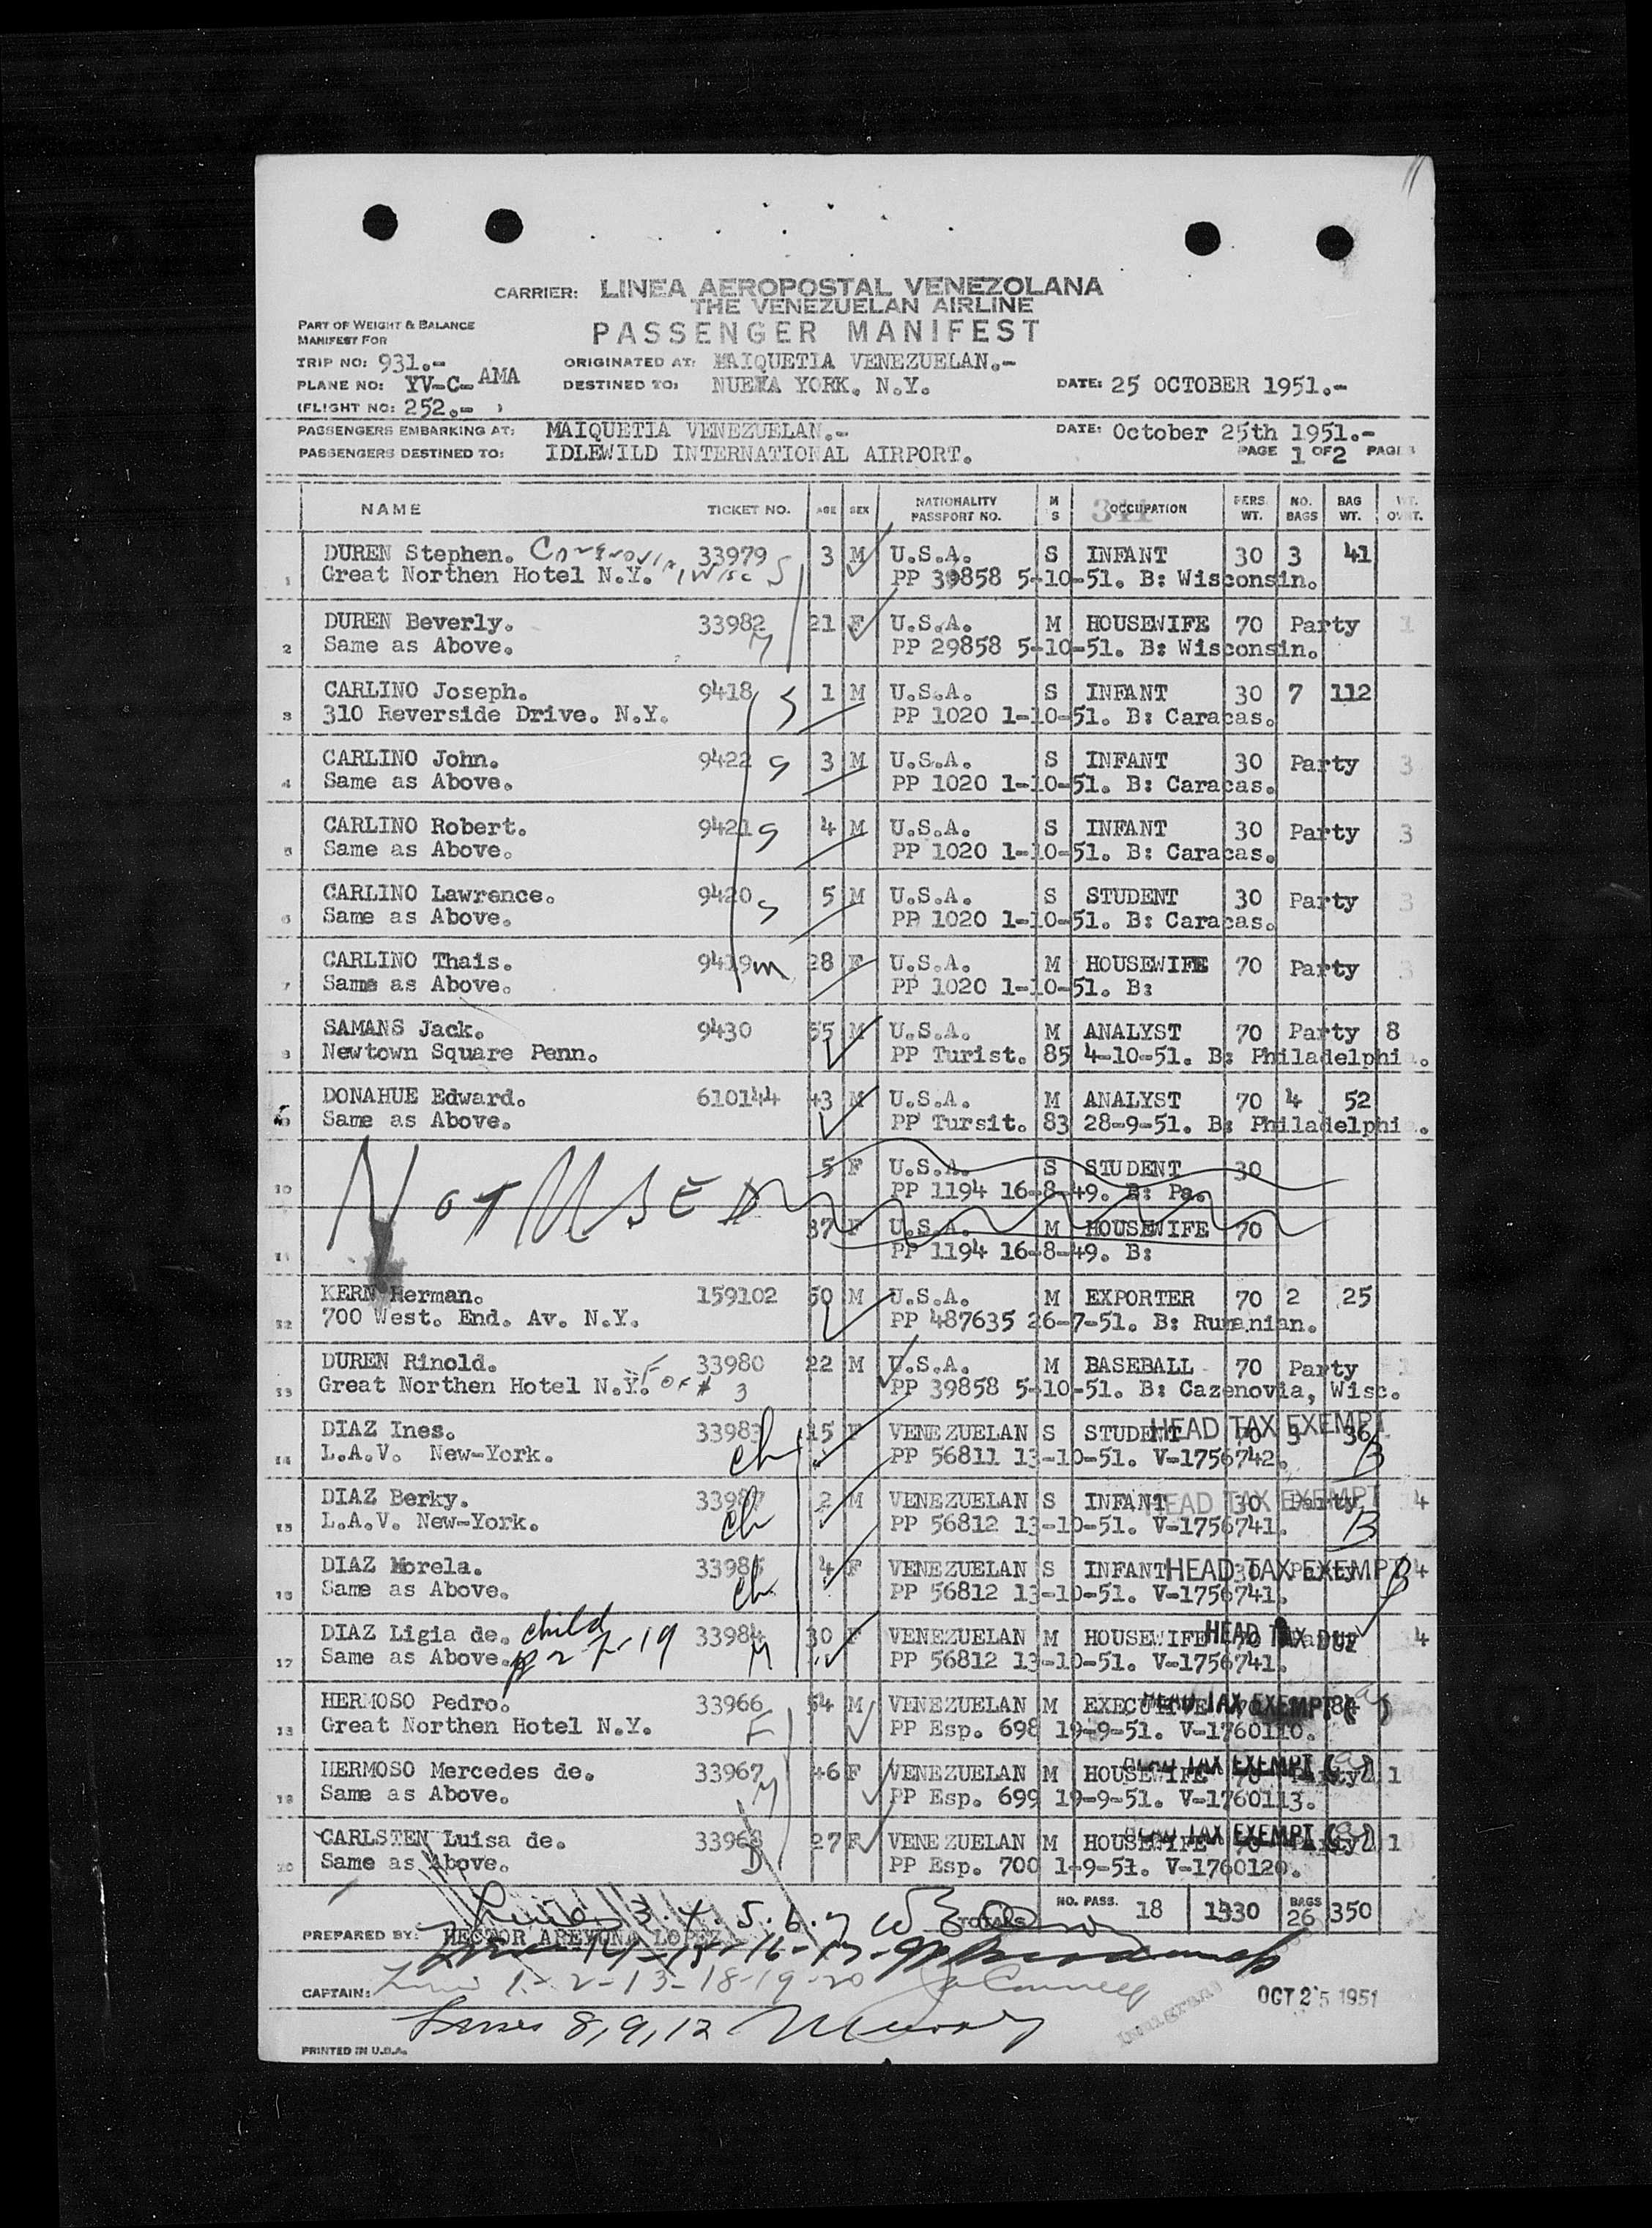 CARRIER: LINEA AEROPOSTAL VENEZOLANA
THE VENEZUELAN AIRLINE
PART OF WEIGHT & BALANCE
MANIFEST FOR
PASSENGER MANIFEST
TRIP NO: 931.- ORIGINATED AT: MAIQUETIA VENEZUELAN.-
PLANE NO: YV-C-AMA DESTINED TO: NUEVA YORK. N.Y. DATE: 25 OCTOBER 1951.-
(FLIGHT NO: 252.- )
PASSENGERS EMBARKING AT: MAIQUETIA VENEZUELAN.- DATE: October 25th 1951.-
PASSENGERS DESTINED TO: IDLEWILD INTERNATIONAL AIRPORT. PAGE 1 OF 2 PAGES
NAME TICKET NO. AGE SEX NATIONALITY PASSPORT NO. M S OCCUPATION PERS. WT. NO. BAGS BAG WT. WT. OVWT.
344
DUREN Stephen. 33979 3 M U.S.A. S INFANT 30 3 41
1 Great Northen Hotel N.Y. Wisc S PP 39858 5-10-51. B: Wisconsin.
DUREN Beverly. 33982 21 F U.S.A. M HOUSEWIFE 70 Party 1
2 Same as Above. PP 29858 5-10-51. B: Wisconsin.
CARLINO Joseph. 9418 S 1 M U.S.A. S INFANT 30 7 112
3 310 Reverside Drive. N.Y. PP 1020 1-10-51. B: Caracas.
CARLINO John. 9422 S 3 M U.S.A. S INFANT 30 Party 3
4 Same as Above. PP 1020 1-10-51. B: Caracas.
CARLINO Robert. 9421 S 4 M U.S.A. S INFANT 30 Party 3
5 Same as Above. PP 1020 1-10-51. B: Caracas.
CARLINO Lawrence. 9420 S 5 M U.S.A. S STUDENT 30 Party 3
6 Same as Above. PP 1020 1-10-51. B: Caracas.
CARLINO Thais. 9419 m 28 F U.S.A. M HOUSEWIFE 70 Party 3
7 Same as Above. PP 1020 1-10-51. B:
SAMANS Jack. 9430 55 M U.S.A. M ANALYST 70 Party 8
8 Newtown Square Penn. PP Turist. 85 4-10-51. B: Philadelphi .
DONAHUE Edward. 610144 43 M U.S.A. M ANALYST 70 4 52
Same as Above. PP Tursit. 83 28-9-51. B: Philadelphi .
NOT USED 5 F U.S.A. S STUDENT 30
10 PP 1194 16-8-49. B: Pa.
37 F U.S.A. M HOUSEWIFE 70
11 PP 1194 16-8-49. B:
KERN Herman. 159102 50 M U.S.A. M EXPORTER 70 2 25
12 700 West. End. Av. N.Y. PP 487635 26-7-51. B: Rumanian.
DUREN Rinold. 33980 22 M U.S.A. M BASEBALL 70 Party 1
13 Great Northen Hotel N.Y. F of # 3 PP 39858 5-10-51. B: Cazenovia, Wisc.
DIAZ Ines. 33983 15 F VENEZUELAN S STUDENT 70 3 36 HEAD TAX EXEMPT
14 L.A.V. New-York. ch PP 56811 13-10-51. V-1756742. B
DIAZ Berky. 33987 2 M VENEZUELAN S INFANT 30 Party 4 HEAD TAX EXEMPT
15 L.A.V. New-York. ch PP 56812 13-10-51. V-1756741. B
DIAZ Morela. 33985 4 F VENEZUELAN S INFANT 30 Party 4 HEAD TAX EXEMPT B
16 Same as Above. ch PP 56812 13-10-51. V-1756741.
DIAZ Ligia de. child 33984 30 F VENEZUELAN M HOUSEWIFE 70 4 HEAD TAX DUE
17 Same as Above. p 2 l-19 M PP 56812 13-10-51. V-1756741.
HERMOSO Pedro. 33966 54 M VENEZUELAN M EXECUTIVE HEAD TAX EXEMPT 84
18 Great Northen Hotel N.Y. F PP Esp. 698 19-9-51. V-1760110.
HERMOSO Mercedes de. 33967 46 F VENEZUELAN M HOUSEWIFE 70 Party 1 HEAD TAX EXEMPT
19 Same as Above. M PP Esp. 699 19-9-51. V-1760113.
CARLSTEN Luisa de. 33968 27 F VENEZUELAN M HOUSEWIFE 70 Party 1 HEAD TAX EXEMPT
20 Same as Above. D PP Esp. 700 1-9-51. V-1760120.
Lines 3. 4. 5. 6. 7 TOTALS NO. PASS. 18 1330 BAGS 26 350
PREPARED BY: HECTOR AREVUNA LOPEZ
Lines 14-15-16-17-
CAPTAIN: Lines 1-2-13-18-19-20 OCT 25 1951
Lines 8, 9, 12 Murray
Inmigrans
PRINTED IN U.S.A.